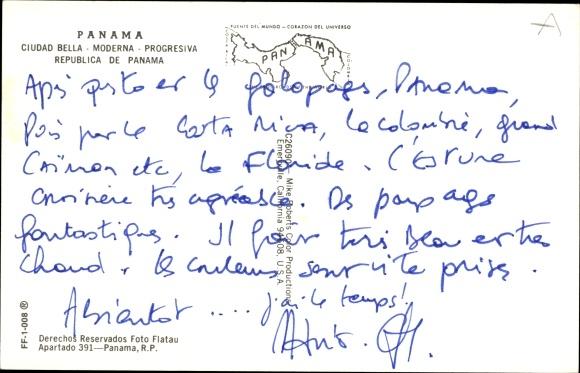 PANAMA
CIUDAD BELLA - MODERNA - PROGRESIVA
REPUBLICA DE PANAMA
PUENTE DEL MUNDO - CORAZON DEL UNIVERSO
PANAMA
A
et les galapagos, Panama,
Puis par le Costa Rica, la colombie, grand
Caïman etc, la Floride. C'est une
croisière très agréable. Des paysages
fantastiques. Il fait très beau et très
chaud. les couleurs sont vite prises.
A bientôt .... j'ai le temps!
C26090 — Mike Roberts Color Productions
Emeryville, California 94608, U.S.A.
FF-1-008 ®
Derechos Reservados Foto Flatau
Apartado 391—Panama, R.P.